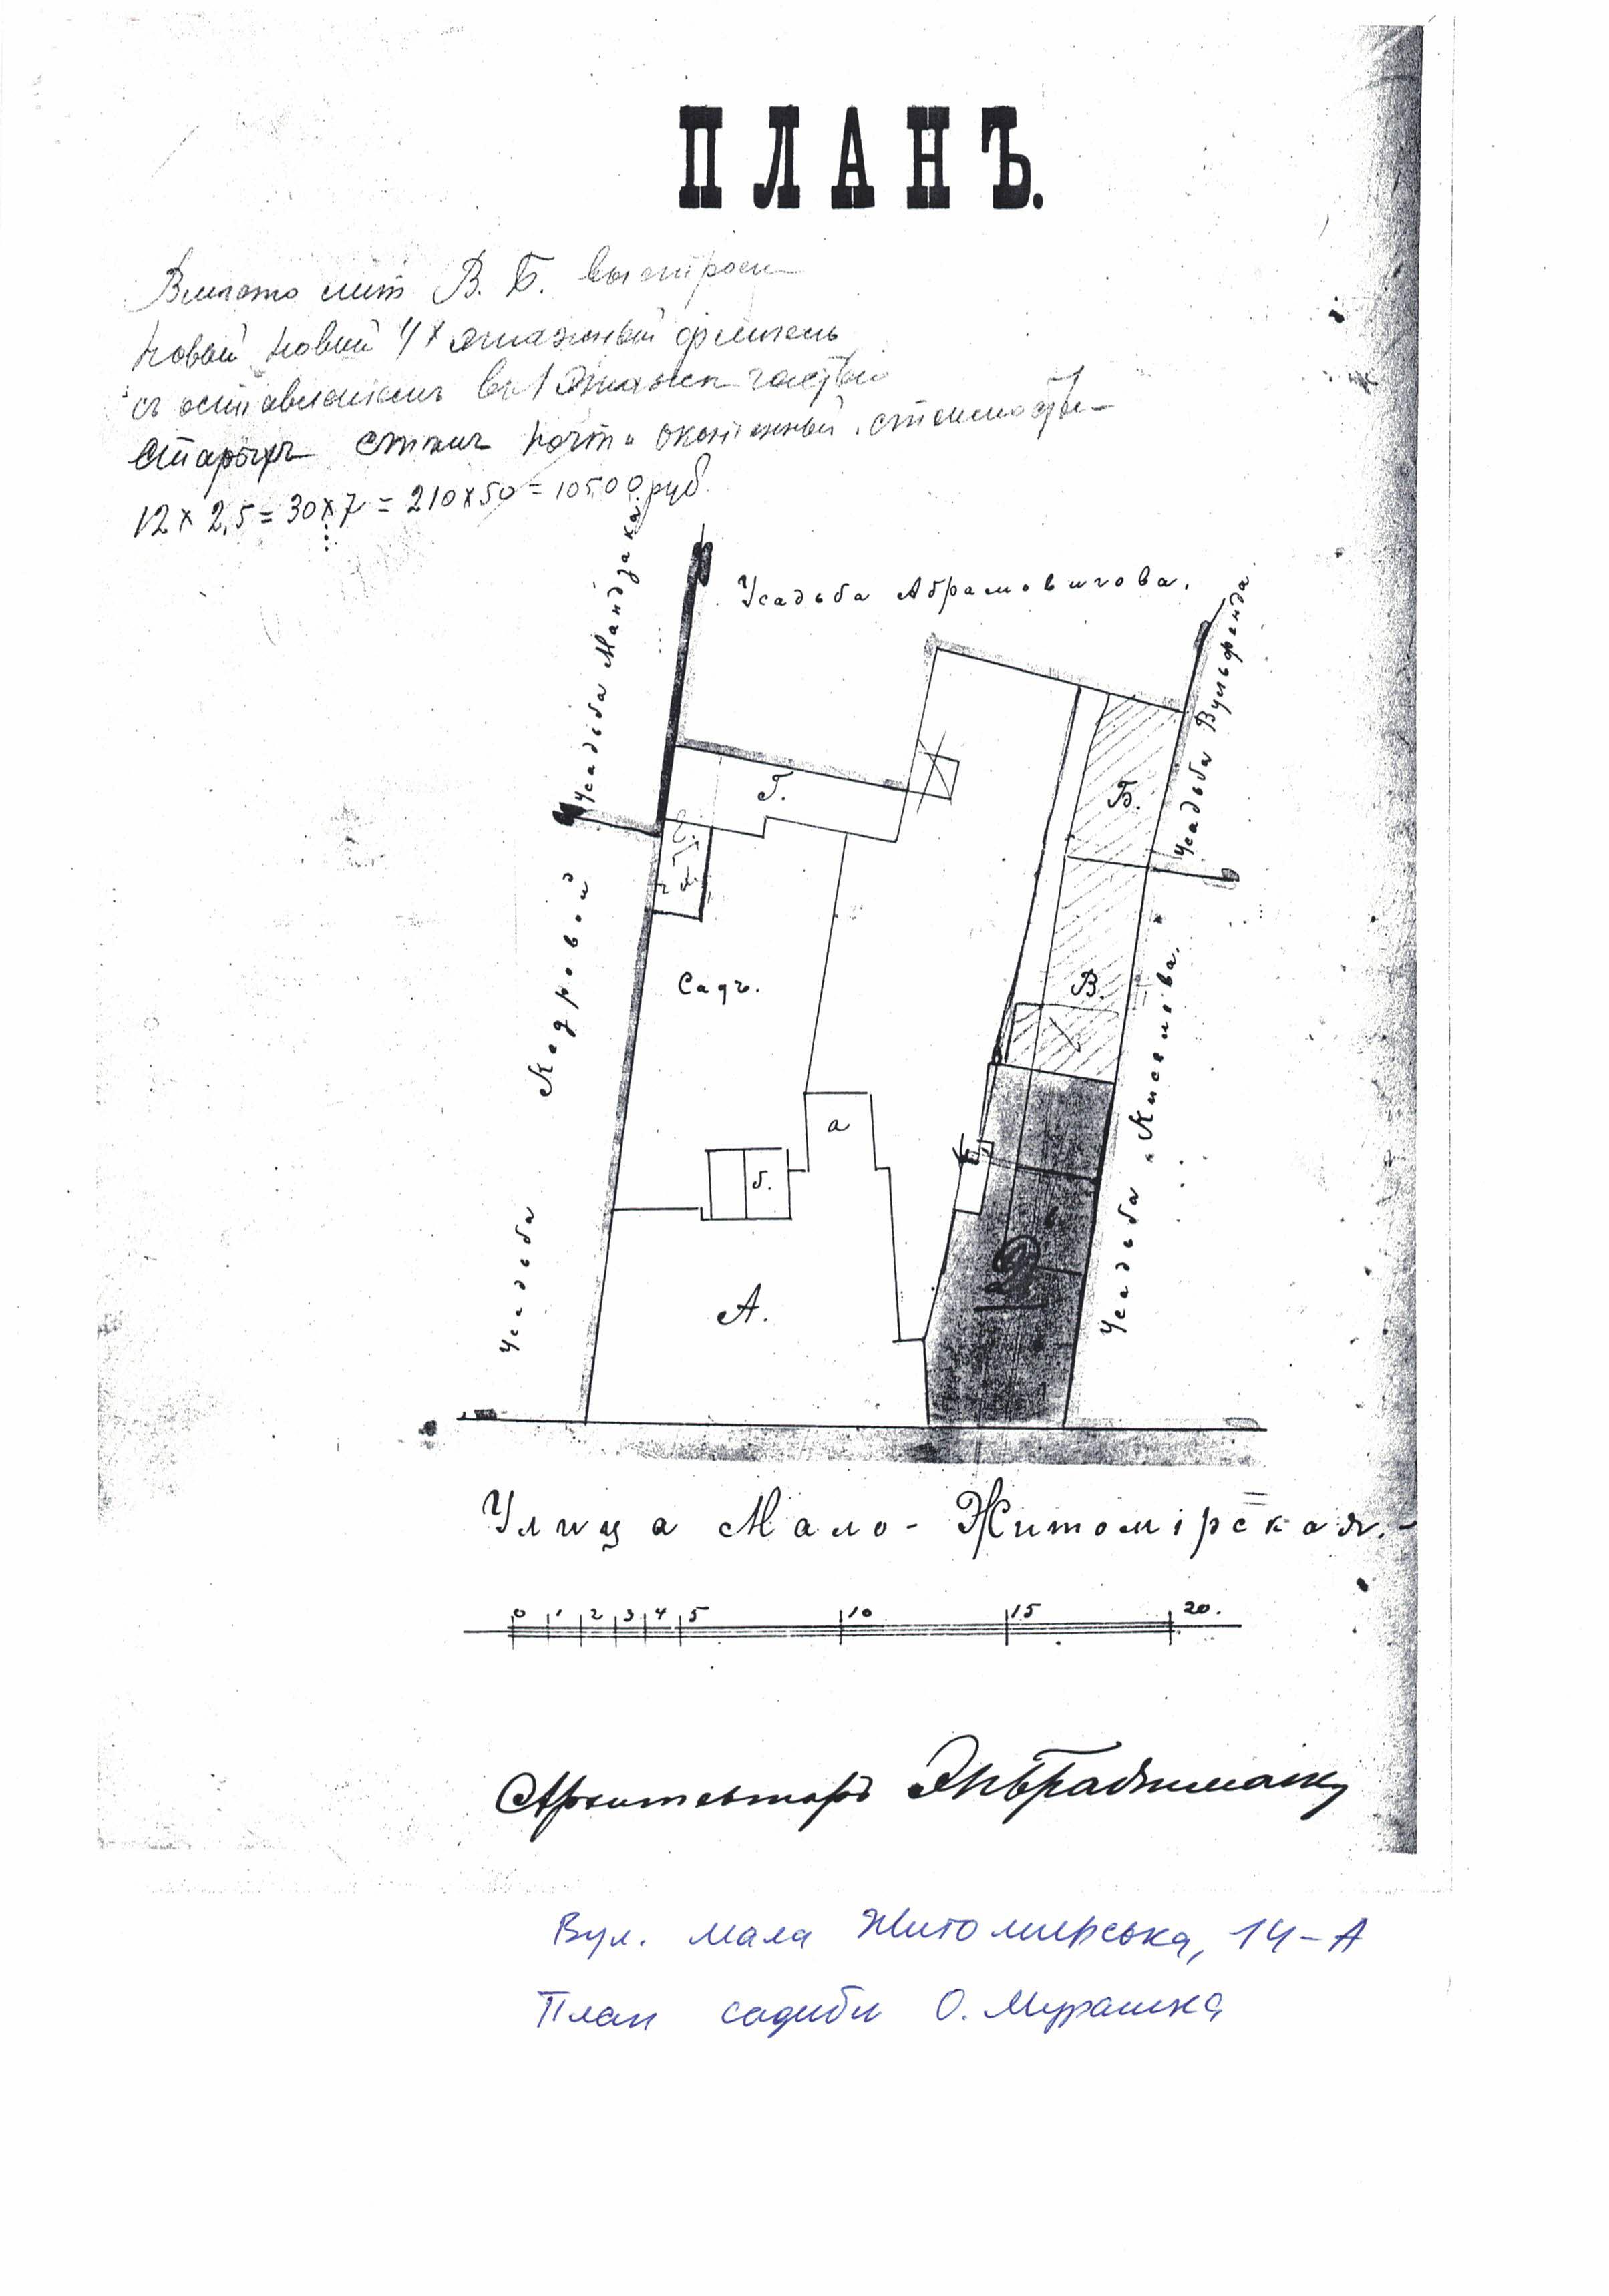 ПЛАНЪ.
Вместо лит В. Б. выстроен
новый новый 4х этажный флигель
съ оставлением в 1 этаже частью
старыхъ стен почти оконченный. стоимостью
12 х 2,5 = 30 х 7 = 210 х 50 = 10500 руб.
Усадьба Абрамовичова.
Усадьба Мандзака
Усадьба Вульфенда.
Г.
Б.
Усадьба Кедровой
Садъ.
В.
Усадьба Кисьлева.
а
б.
в.
2
А.
Улица Мало-Житомірская.
0 1 2 3 4 5 10 15 20.
Архитекторъ Брадтманъ
Вул. мала Житомирська, 14-А
План садиби О. Мурашка